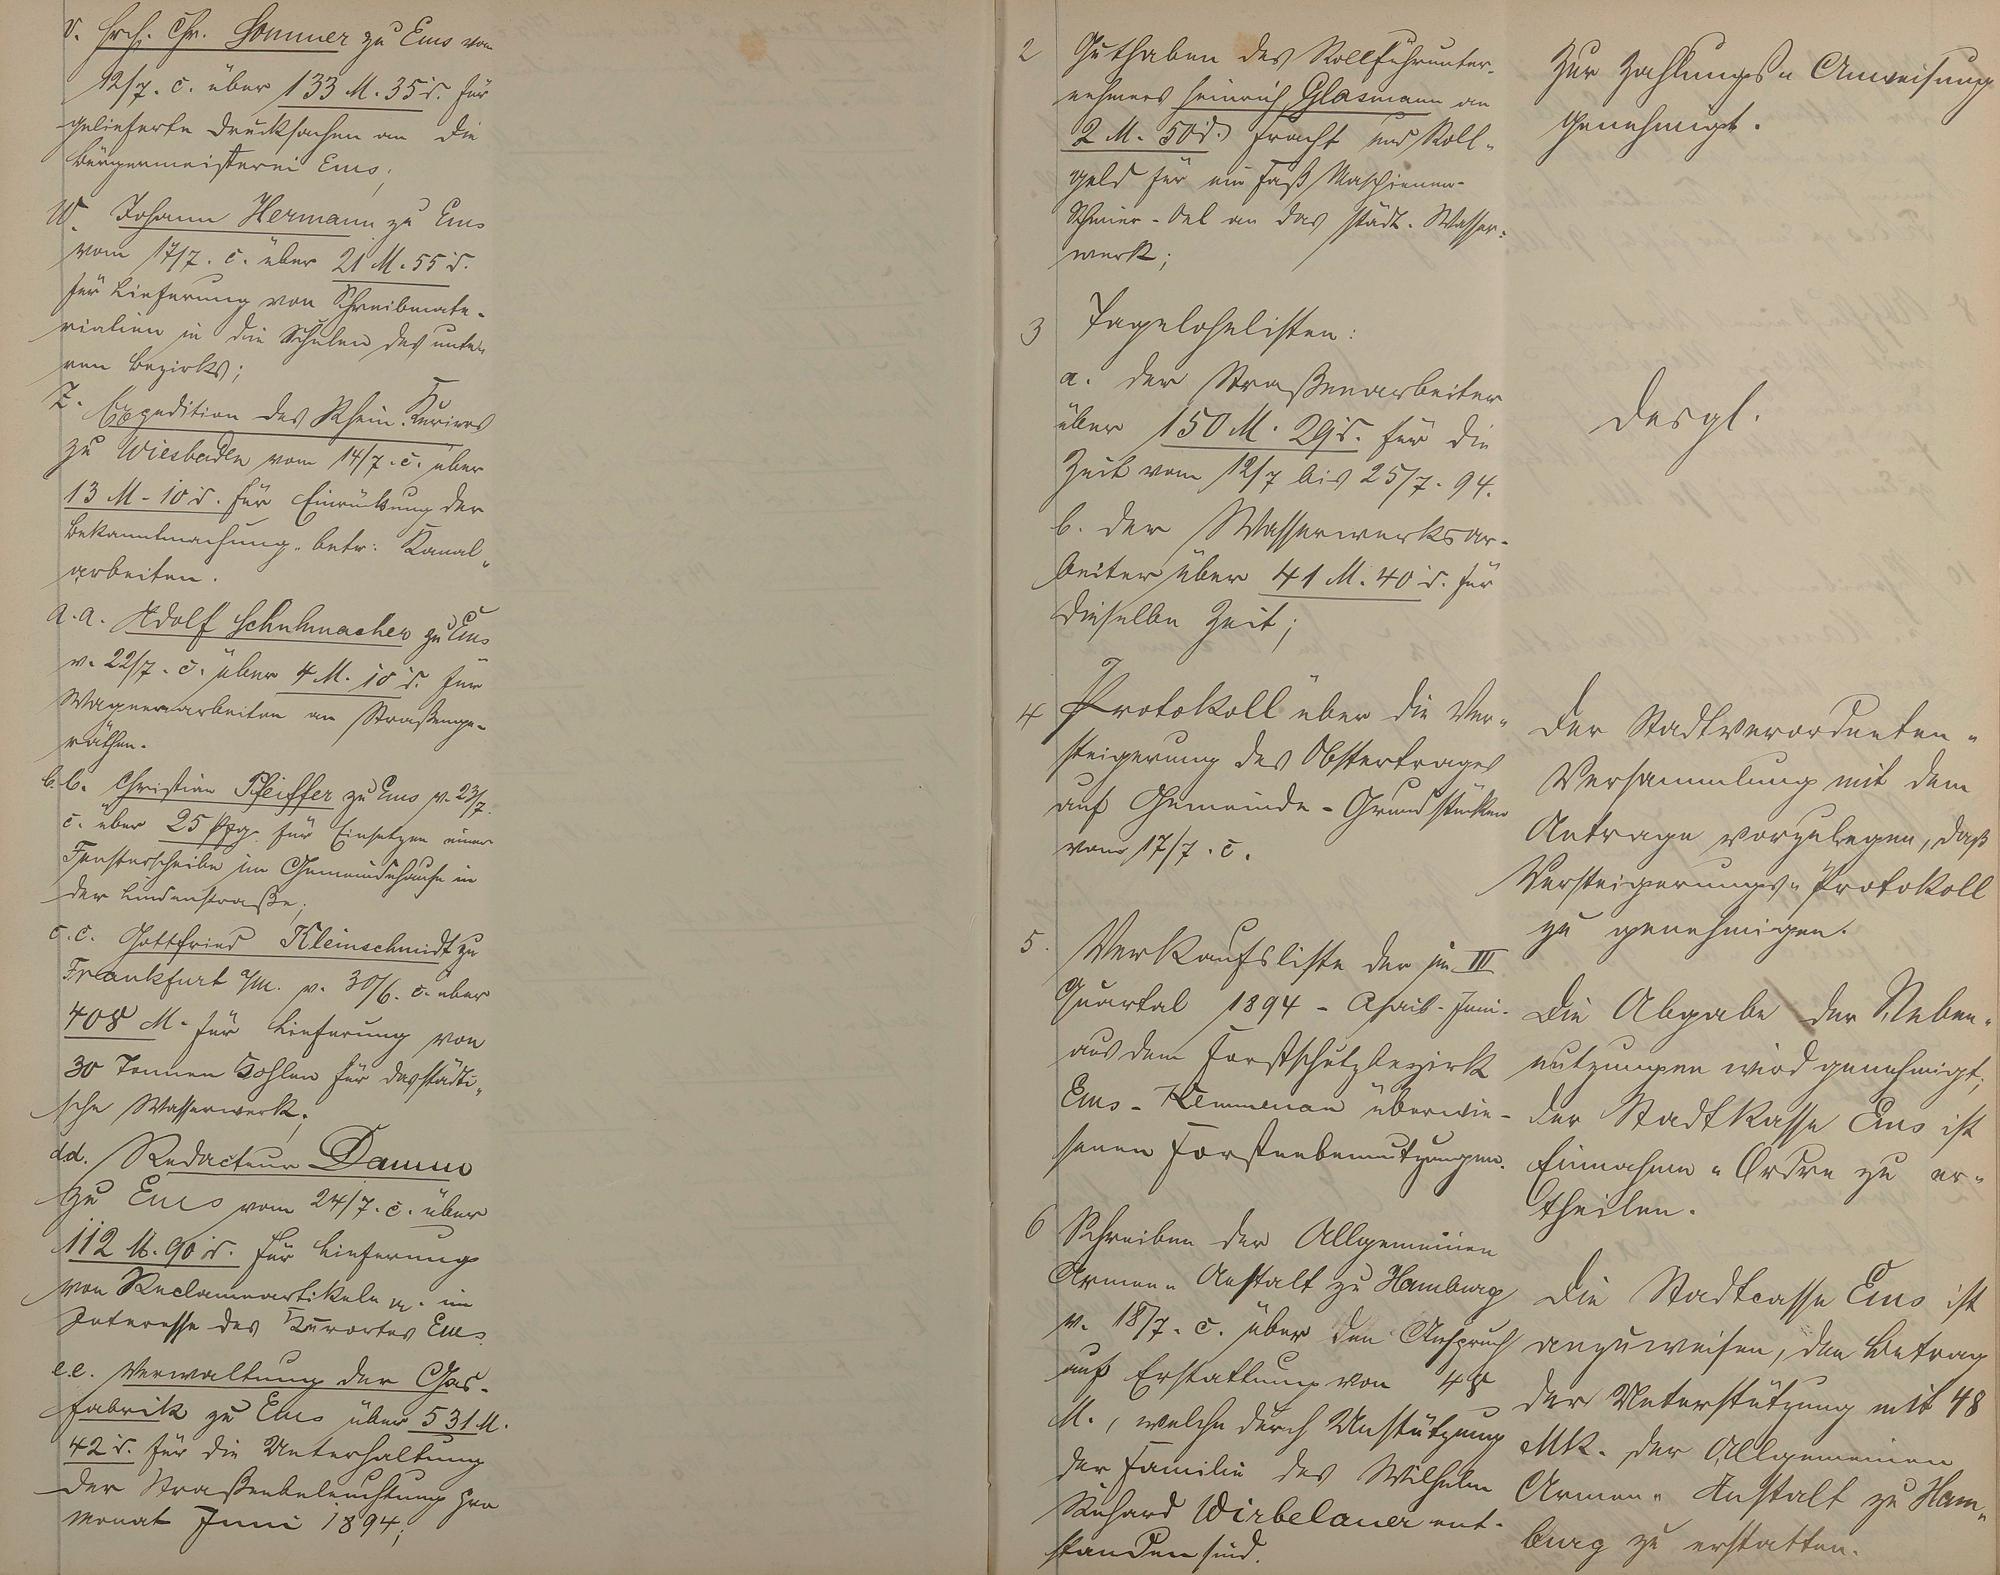 v. Hrch. Chr. Sommer zu Ems vom
12/7. c. über 133 M. 35 d. für
gelieferte Drucksachen an die
Bürgermeisterei Ems;
w. Johann Hermann zu Ems
vom 17/7. c. über 21 M. 55 d.
für Lieferung von Schreibmate-
rialien in die Schulen des unte-
ren Bezirks;
z. Expedition des Rhein. Kuriers
zu Wiesbaden vom 14/7. c. über
13 M. 10 d. für Einrückung der
Bekanntmachung betr: Kanal-
arbeiten.
a.a. Adolf Schuhmacher zu Ems
v. 22/7. c. über 4 M. 10 d. für
Wagnerarbeiten an Straßenge-
räthen.
b.b. Christian Pfeiffer zu Ems v. 23/7.
c. über 25 Pfg. für Einsetzen einer
Fensterscheibe im Gemeindehause in
der Lindenstraße;
c.c. Gottfried Kleinschmidt zu
Frankfurt a/M. v. 30/6. c. über
408 M. für Lieferung von
30 Tonnen Kohlen für das städti-
sche Wasserwerk;
dd. Redacteur Damm
zu Ems vom 24/7. c. über
112 M. 90 d. für Lieferung
von Reclameartikeln im
Interesse des Kurortes Ems.
e.e. Verwaltung der Gas-
fabrik zu Ems über 531 M.
42 d. für die Unterhaltung
der Straßenbeleuchtung pro
Monat Juni 1894;
2 Guthaben des Rollfuhrunter-
nehmers Heinrich Glasmann an
2 M. 50 d. Fracht und Roll-
geld für ein Faß Maschienen-
Schmier-Oel an das städt. Wasser-
werk;
Zur Zahlungs-Anweisung
genehmigt.
3 Tagelohnlisten:
a. der Straßenarbeiter
über 150 M. 29 d. für die
Zeit vom 12/7 bis 25/7. 94.
b. der Wasserwerksar-
beiter über 41 M. 40 d. für
dieselbe Zeit;
desgl.
4 Protokoll über die Ver-
steigerung des Obstertrages
auf Gemeinde-Grundstücken
vom 17/7. c.
Der Stadtverordneten-
Versammlung mit dem
Antrage vorzulegen, daß
Versteigerungs-Protokoll
zu genehmigen.
5. Verkaufsliste der im III
Quartal 1894 - April-Juni-
aus dem Forstschutzbezirk
Ems-Kemmenau überwie-
senen Forstnebennutzungen.
Die Abgabe der Neben-
nutzungen wird genehmigt;
der Stadtkasse Ems ist
Einnahme-Ordre zu er-
theilen.
6 Schreiben der Allgemeinen
Armen-Anstalt zu Hamburg
v. 18/7. c. über den Anspruch
auf Erstattung von 48
M., welche durch Unstützung
der Familie des Wilhelm
Richard Wirbelauer ent-
standen sind.
Die Stadtcasse Ems ist
anzuweisen, den Betrag
der Unterstützung mit 48
Mk. der Allgemeinen
Armen-Anstalt zu Ham-
burg zu erstatten.